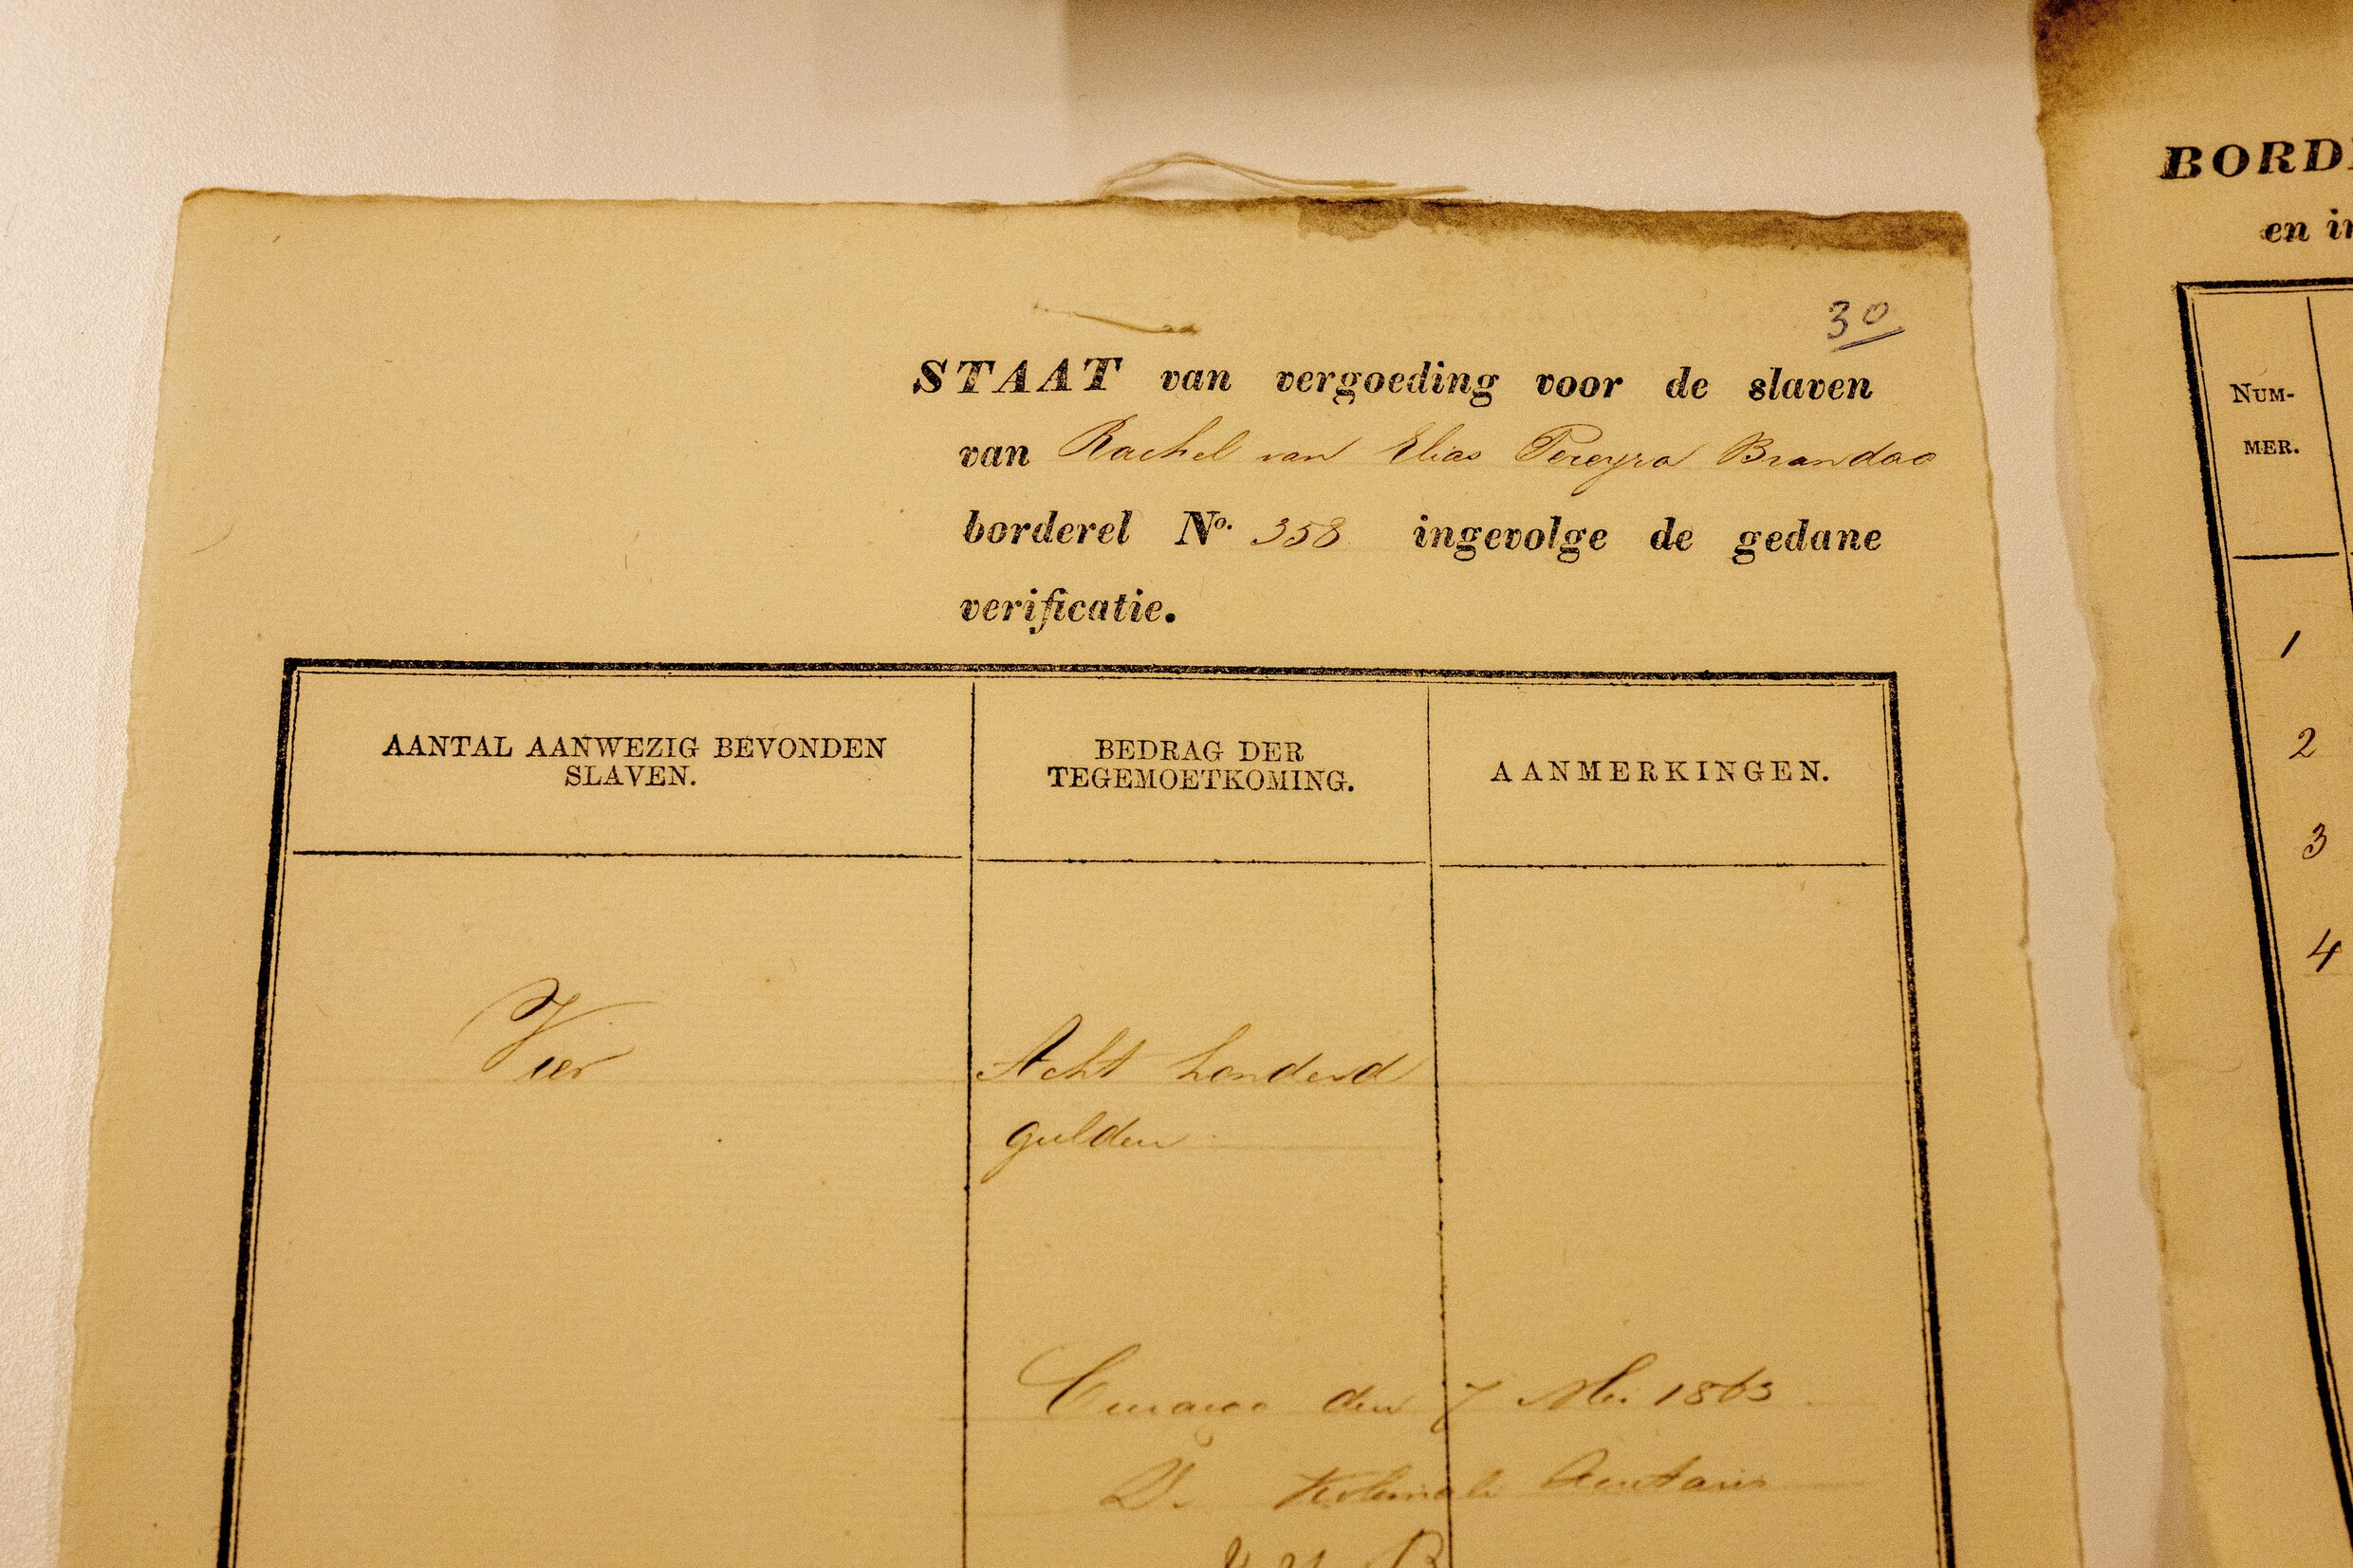 30
STAAT van vergoeding voor de slaven
van Rachel van Elias Pereyra Brandao
borderel No. 358 ingevolge de gedane
verificatie.
AANTAL AANWEZIG BEVONDEN
SLAVEN.
BEDRAG DER
TEGEMOETKOMING.
AANMERKINGEN.
Vier
Acht honderd
gulden
Curaçao den 7 Mei 1863
De Koloniale Secretaris
BORD
en in
NUM-
MER.
1
2
3
4